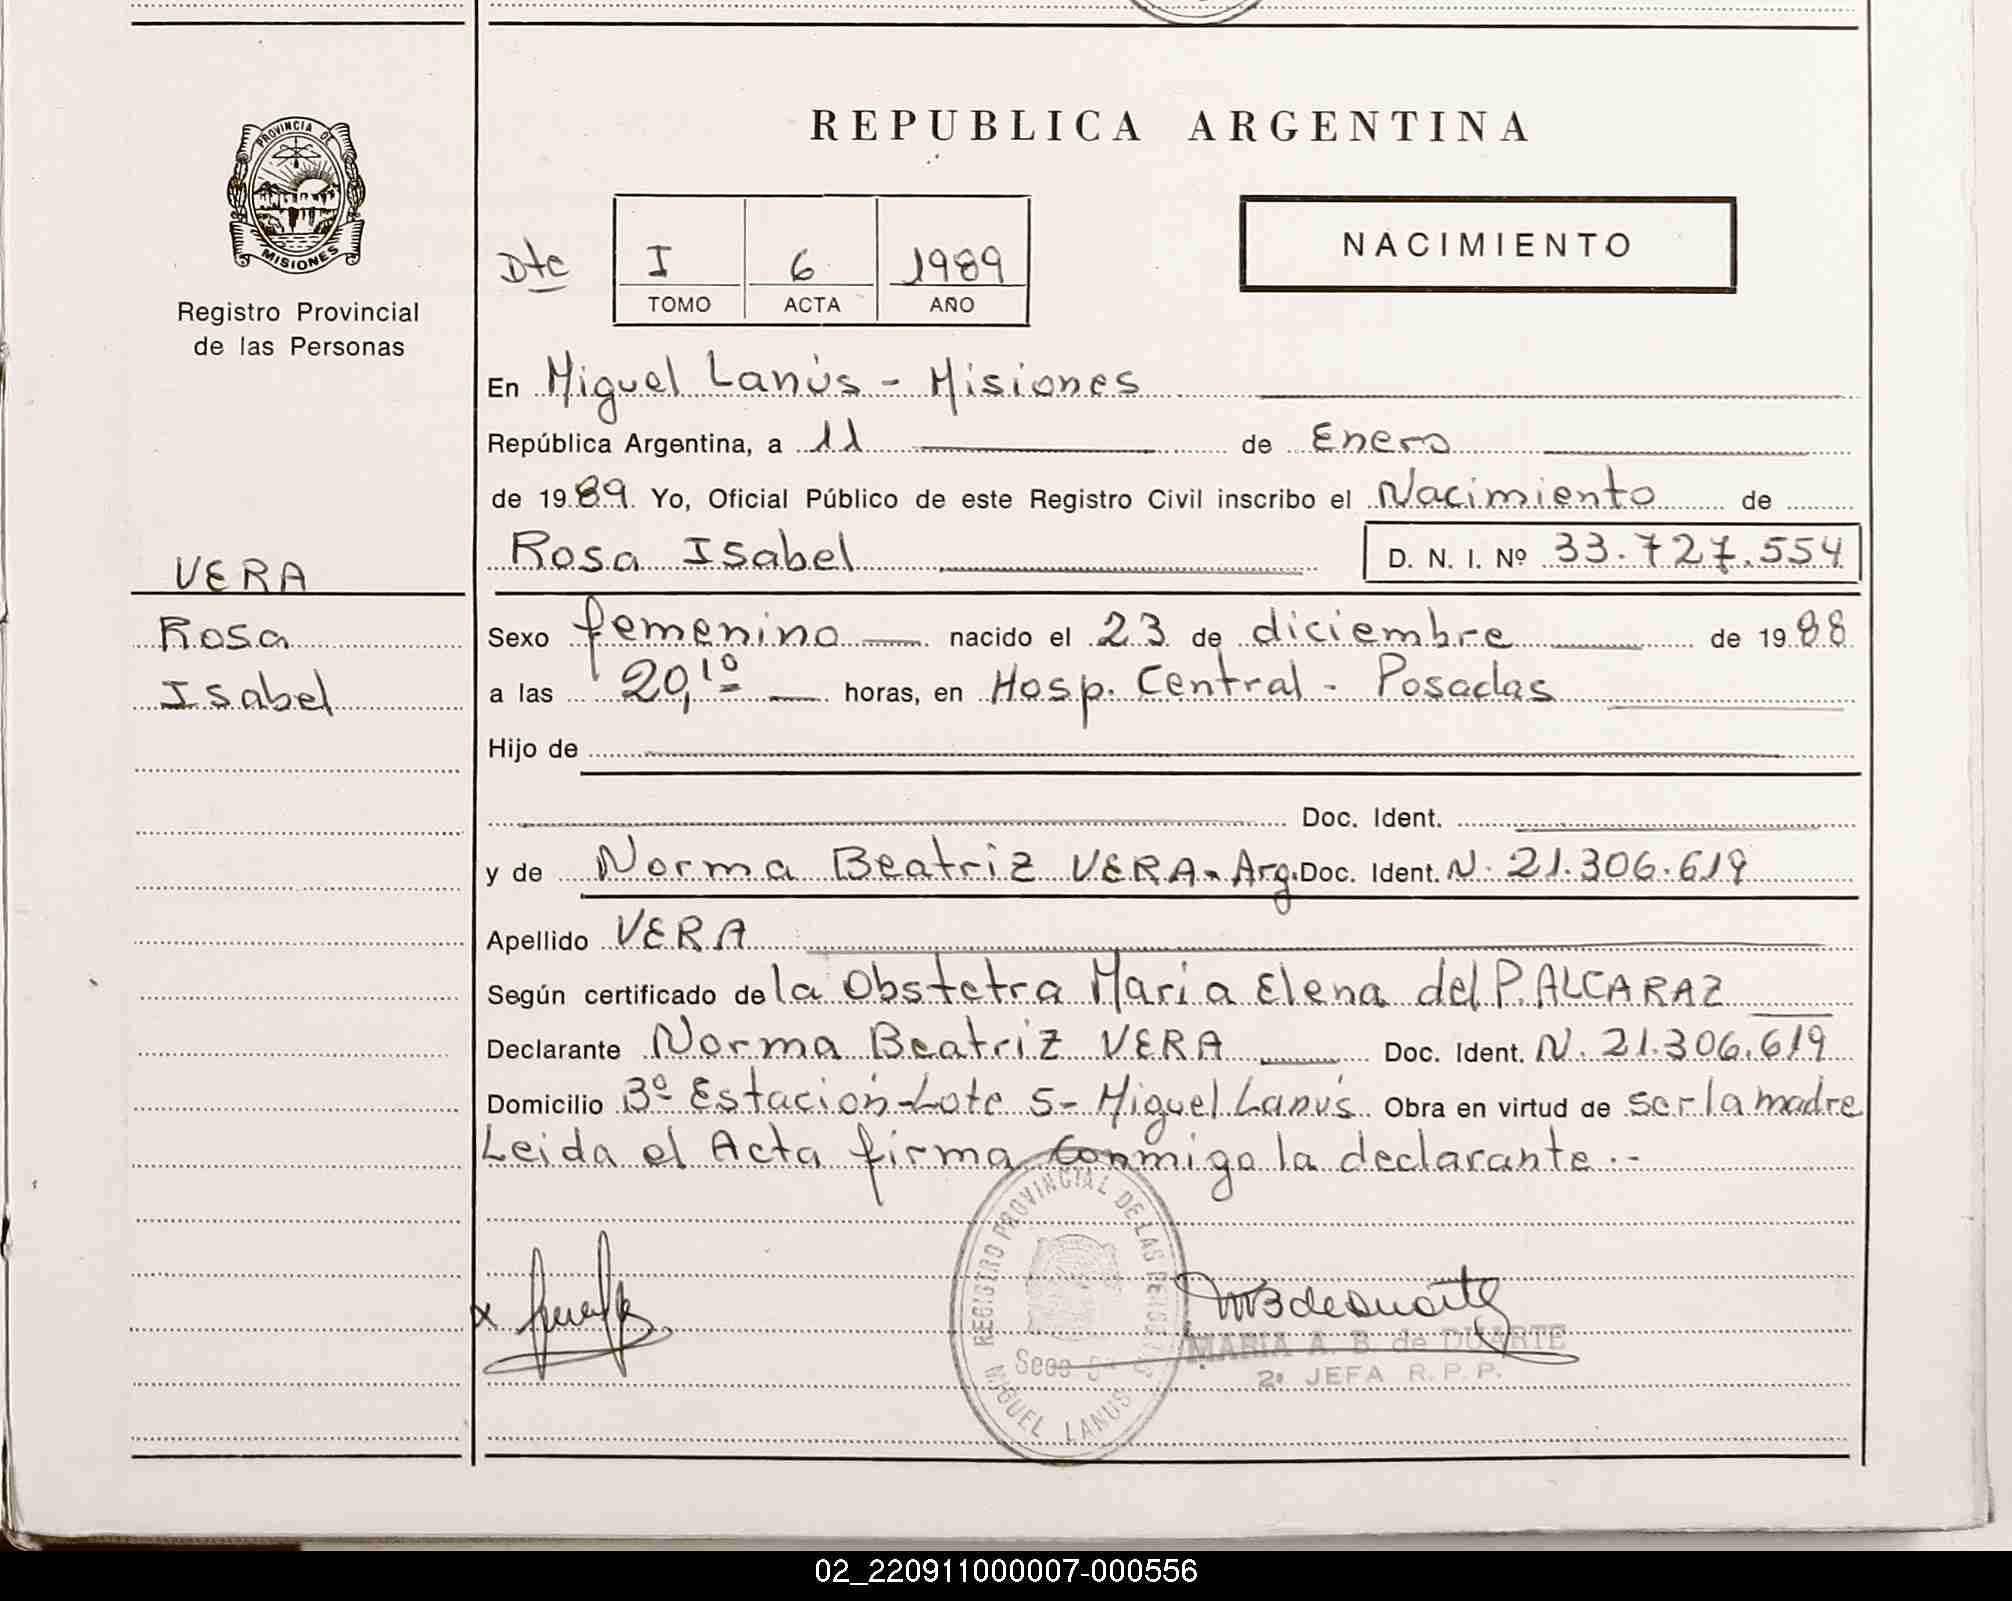 PROVINCIA DE
MISIONES
Registro Provincial
de las Personas
VERA
Rosa
Isabel
REPUBLICA ARGENTINA
Dtc
I 6 1989
TOMO ACTA AÑO
NACIMIENTO
En Miguel Lanús - Misiones
República Argentina, a 11 de Enero
de 1989. Yo, Oficial Público de este Registro Civil inscribo el Nacimiento de
Rosa Isabel D. N. I. Nº 33.727.554
Sexo femenino nacido el 23 de diciembre de 1988
a las 20,10 horas, en Hosp. Central - Posadas
Hijo de
Doc. Ident.
y de Norma Beatriz VERA - Arg. Doc. Ident. N. 21.306.619
Apellido VERA
Según certificado de la Obstetra Maria Elena del P. ALCARAZ
Declarante Norma Beatriz VERA Doc. Ident. N. 21.306.619
Domicilio 3º Estación - Lote 5 - Miguel Lanús Obra en virtud de ser la madre
Leida el Acta firma conmigo la declarante.-
REGISTRO PROVINCIAL DE LAS PERSONAS
MIGUEL LANUS
MARIA A. B. de DUARTE
2º JEFA R. P. P.
02_220911000007-000556